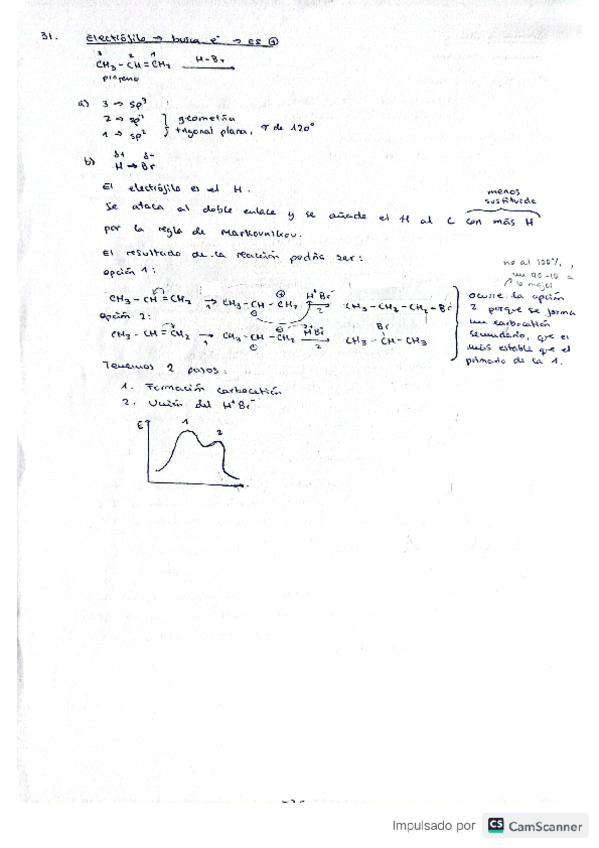 31. Electrófilo → busca e⁻ → es ⊕
3 2 1
CH₃ - CH = CH₂ H-Br →
propeno
a) 3 → sp³
2 → sp² geometría
1 → sp² trigonal plana, de 120°
b) δ+ δ-
H → Br
El electrófilo es el H.
menos sustituido
Se ataca al doble enlace y se añade el H al C con más H
por la regla de Markovnikov.
El resultado de la reacción podría ser:
no al 100%, un 90-10 = lo mejor
Opción 1:
CH₃ - CH = CH₂ → 1 CH₃ - CH - CH₂ ⊕ ⊖ H⁺Br⁻ 2 CH₃ - CH₂ - CH₂ - Br
Opción 2:
CH₃ - CH = CH₂ → 1 CH₃ - CH - CH₂ ⊕ ⊖ H⁺Br⁻ → 2 CH₃ - CH - CH₃
Br
ocurre la opción
2 porque se forma
un carbocatión
secundario, que es
más estable que el
primario de la 1.
Tenemos 2 pasos:
1. Formación carbocatión
2. Unión del H⁺Br⁻
E 1 2
Impulsado por CS CamScanner